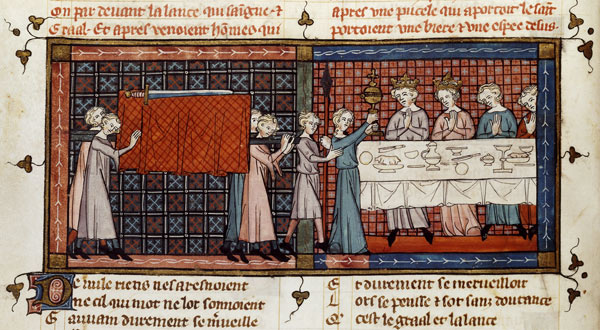 on par devant la lance qui sangne &
Graal · Et apres venoient hommes qui
apres une pucele qui aportoit le saint
portoient une biere & une espee desus ·
De nule riens nes aresnoient
Ne cil qui mot ne lor sonnoient
Gauvain durement se m̃veille
E t durement se merveilloit
L ors se pense & sot sans doutance
Q cest le graal et la lance